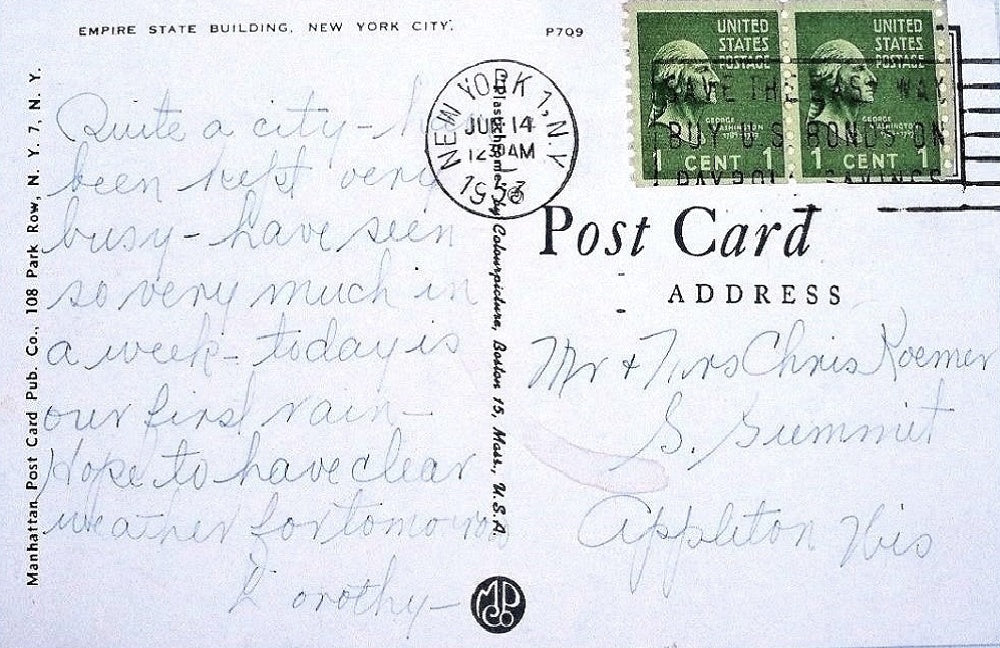 EMPIRE STATE BUILDING, NEW YORK CITY.
P709
Manhattan Post Card Pub. Co., 108 Park Row, N. Y. 7, N. Y.
Quite a city - have
been kept very
busy - have seen
so very much in
a week - today is
our first rain -
Hope to have clear
weather for tomorrow
Dorothy -
Plastichrome by Colourpicture, Boston 15, Mass., U.S.A.
NEW YORK 1, N.Y
JUN 14
AM
1953
UNITED
STATES
POSTAGE
GEORGE
WASHINGTON
1 CENT 1
UNITED
STATES
POSTAGE
GEORGE
WASHINGTON
1 CENT 1
SAVE THE EASY WAY
BUY U.S. BONDS ON
PAYROLL SAVINGS
Post Card
ADDRESS
Mr & Mrs Chris Roemer
S. Summit
Appleton Wis